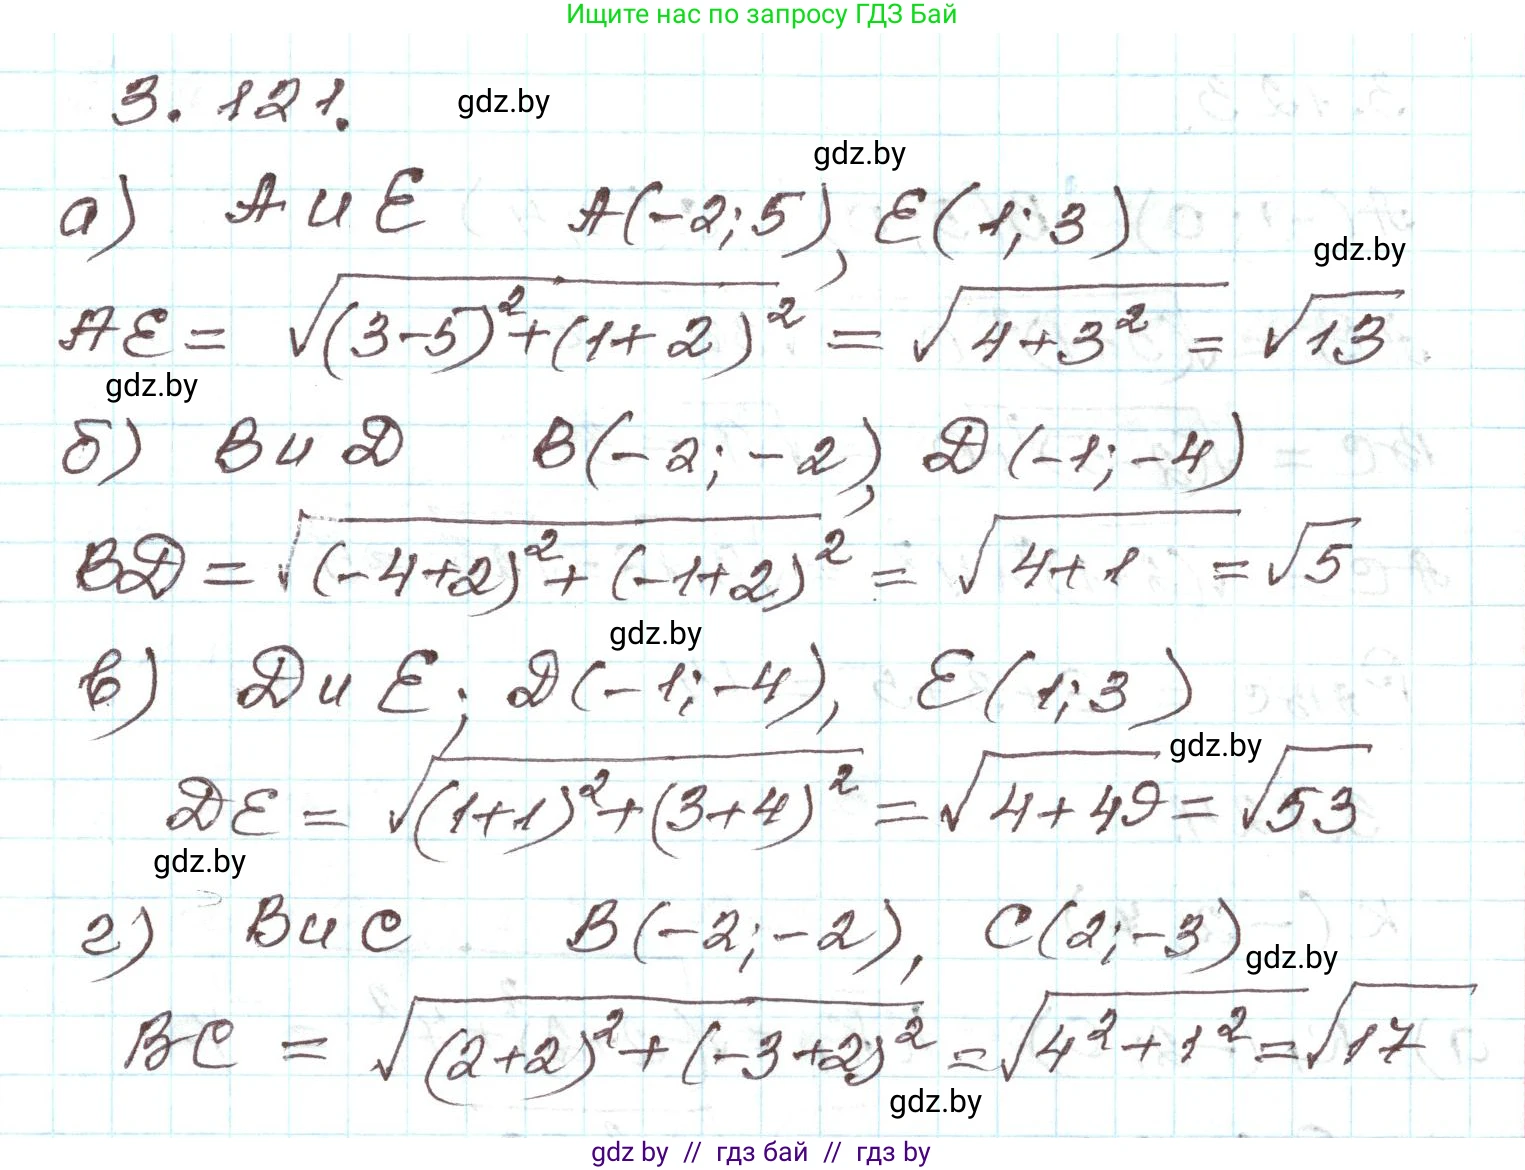 Ищите нас по запросу ГДЗ Бай
3.121. gdz.by
gdz.by
а) А и Е А(-2;5), Е(1;3)
gdz.by
АЕ = √((3-5)²+(1+2)²) = √(4+3²) = √13
gdz.by
б) В и D В(-2;-2), D(-1;-4)
BD = √((-4+2)²+(-1+2)²) = √(4+1) = √5
gdz.by
в) D и Е; D(-1;-4), Е(1;3)
gdz.by
DE = √((1+1)²+(3+4)²) = √(4+49) = √53
gdz.by
г) В и С В(-2;-2), С(2;-3)
gdz.by
ВС = √((2+2)²+(-3+2)²) = √(4²+1²) = √17
gdz.by
gdz by // гдз бай // гдз by